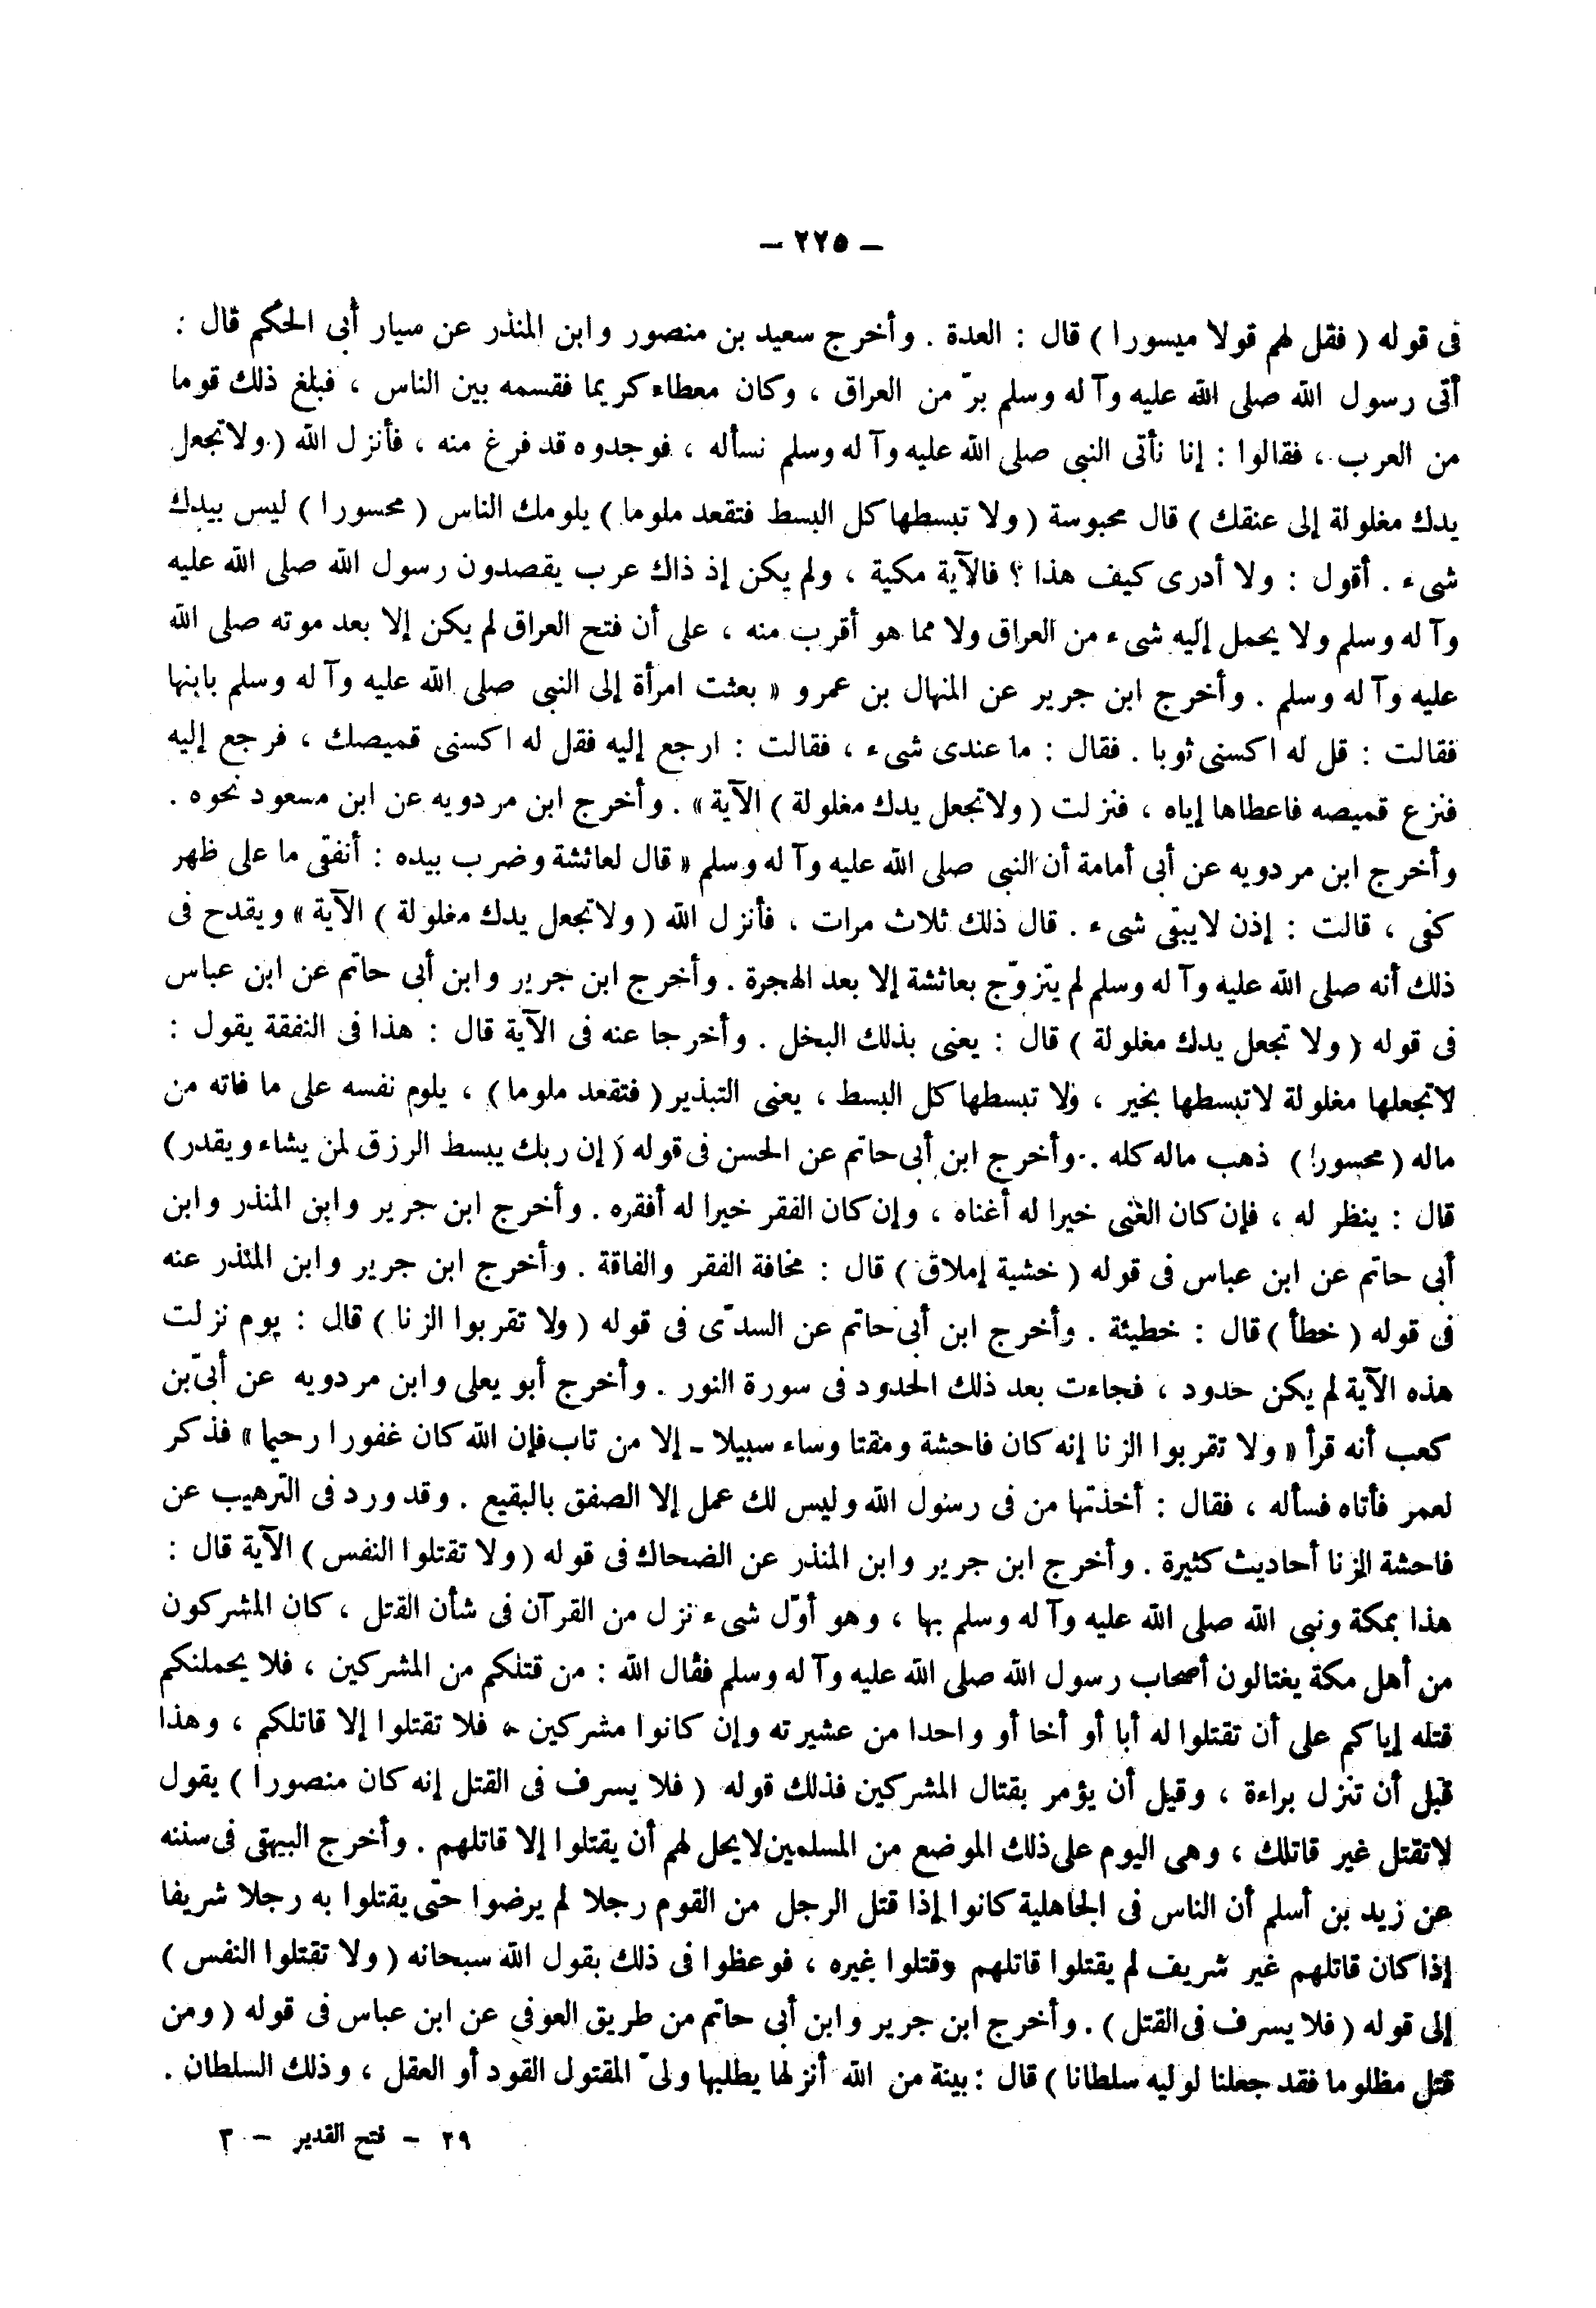 – ٢٢٥ –
فى قوله ( فقل لهم قولا ميسورا ) قال : العدة . وأخرج سعيد بن منصور وابن المنذر عن سيار أبى الحكم قال :
أتى رسول الله صلى الله عليه وآله وسلم برّ من العراق ، وكان معطاء كريما فقسمه بين الناس ، فبلغ ذلك قوما
من العرب ، فقالوا : إنا نأتى النبى صلى الله عليه وآله وسلم نسأله ، فوجدوه قد فرغ منه ، فأنزل الله ( ولا تجعل
يدك مغلولة إلى عنقك ) قال محبوسة ( ولا تبسطها كل البسط فتقعد ملوما ) يلومك الناس ( محسورا ) ليس بيدك
شىء . أقول : ولا أدرى كيف هذا ؟ فالآية مكية ، ولم يكن إذ ذاك عرب يقصدون رسول الله صلى الله عليه
وآله وسلم ولا يحمل إليه شىء من العراق ولا مما هو أقرب منه ، على أن فتح العراق لم يكن إلا بعد موته صلى الله
عليه وآله وسلم . وأخرج ابن جرير عن المنهال بن عمرو « بعثت امرأة إلى النبى صلى الله عليه وآله وسلم بابنها
فقالت : قل له اكسنى ثوبا . فقال : ما عندى شىء ، فقالت : ارجع إليه فقل له اكسنى قميصك ، فرجع إليه
فنزع قميصه فاعطاها إياه ، فنزلت ( ولا تجعل يدك مغلولة ) الآية » . وأخرج ابن مردويه عن ابن مسعود نحوه .
وأخرج ابن مردويه عن أبى أمامة أن النبى صلى الله عليه وآله وسلم « قال لعائشة وضرب بيده : أنفقى ما على ظهر
كفى ، قالت : إذن لا يبقى شىء . قال ذلك ثلاث مرات ، فأنزل الله ( ولا تجعل يدك مغلولة ) الآية » ويقدح فى
ذلك أنه صلى الله عليه وآله وسلم لم يتزوّج بعائشة إلا بعد الهجرة . وأخرج ابن جرير وابن أبى حاتم عن ابن عباس
فى قوله ( ولا تجعل يدك مغلولة ) قال : يعنى بذلك البخل . وأخرجا عنه فى الآية قال : هذا فى النفقة يقول :
لا تجعلها مغلولة لا تبسطها بخير ، ولا تبسطها كل البسط ، يعنى التبذير ( فتقعد ملوما ) ، يلوم نفسه على ما فاته من
ماله ( محسورا ) ذهب ماله كله . وأخرج ابن أبى حاتم عن الحسن فى قوله ( إن ربك يبسط الرزق لمن يشاء ويقدر )
قال : ينظر له ، فإن كان الغنى خيرا له أغناه ، وإن كان الفقر خيرا له أفقره . وأخرج ابن جرير وابن المنذر وابن
أبى حاتم عن ابن عباس فى قوله ( خشية إملاق ) قال : مخافة الفقر والفاقة . وأخرج ابن جرير وابن المنذر عنه
فى قوله ( خطأ ) قال : خطيئة . وأخرج ابن أبى حاتم عن السدّى فى قوله ( ولا تقربوا الزنا ) قال : يوم نزلت
هذه الآية لم يكن حدود ، فجاءت بعد ذلك الحدود فى سورة النور . وأخرج أبو يعلى وابن مردويه عن أبىّ بن
كعب أنه قرأ « ولا تقربوا الزنا إنه كان فاحشة ومقتا وساء سبيلا ـ إلا من تاب فإن الله كان غفورا رحيما » فذكر
لعمر فأتاه فسأله ، فقال : أخذتها من فى رسول الله وليس لك عمل إلا الصفق بالبقيع . وقد ورد فى الترهيب عن
فاحشة الزنا أحاديث كثيرة . وأخرج ابن جرير وابن المنذر عن الضحاك فى قوله ( ولا تقتلوا النفس ) الآية قال :
هذا بمكة ونبى الله صلى الله عليه وآله وسلم بها ، وهو أوّل شىء نزل من القرآن فى شأن القتل ، كان المشركون
من أهل مكة يغتالون أصحاب رسول الله صلى الله عليه وآله وسلم فقال الله : من قتلكم من المشركين ، فلا يحملنكم
قتله إياكم على أن تقتلوا له أبا أو أخا أو واحدا من عشيرته وإن كانوا مشركين ، فلا تقتلوا إلا قاتلكم ، وهذا
قبل أن تنزل براءة ، وقبل أن يؤمر بقتال المشركين فذلك قوله ( فلا يسرف فى القتل إنه كان منصورا ) يقول
لا تقتل غير قاتلك ، وهى اليوم على ذلك الموضع من المسلمين لا يحل لهم أن يقتلوا إلا قاتلهم . وأخرج البيهقى فى سننه
عن زيد بن أسلم أن الناس فى الجاهلية كانوا إذا قتل الرجل من القوم رجلا لم يرضوا حتى يقتلوا به رجلا شريفا
إذا كان قاتلهم غير شريف لم يقتلوا قاتلهم وقتلوا غيره ، فوعظوا فى ذلك بقول الله سبحانه ( ولا تقتلوا النفس )
إلى قوله ( فلا يسرف فى القتل ) . وأخرج ابن جرير وابن أبى حاتم من طريق العوفى عن ابن عباس فى قوله ( ومن
قتل مظلوما فقد جعلنا لوليه سلطانا ) قال : بينة من الله أنزلها يطلبها ولىّ المقتول القود أو العقل ، وذلك السلطان .
٢٩ – فتح القدير – ٣